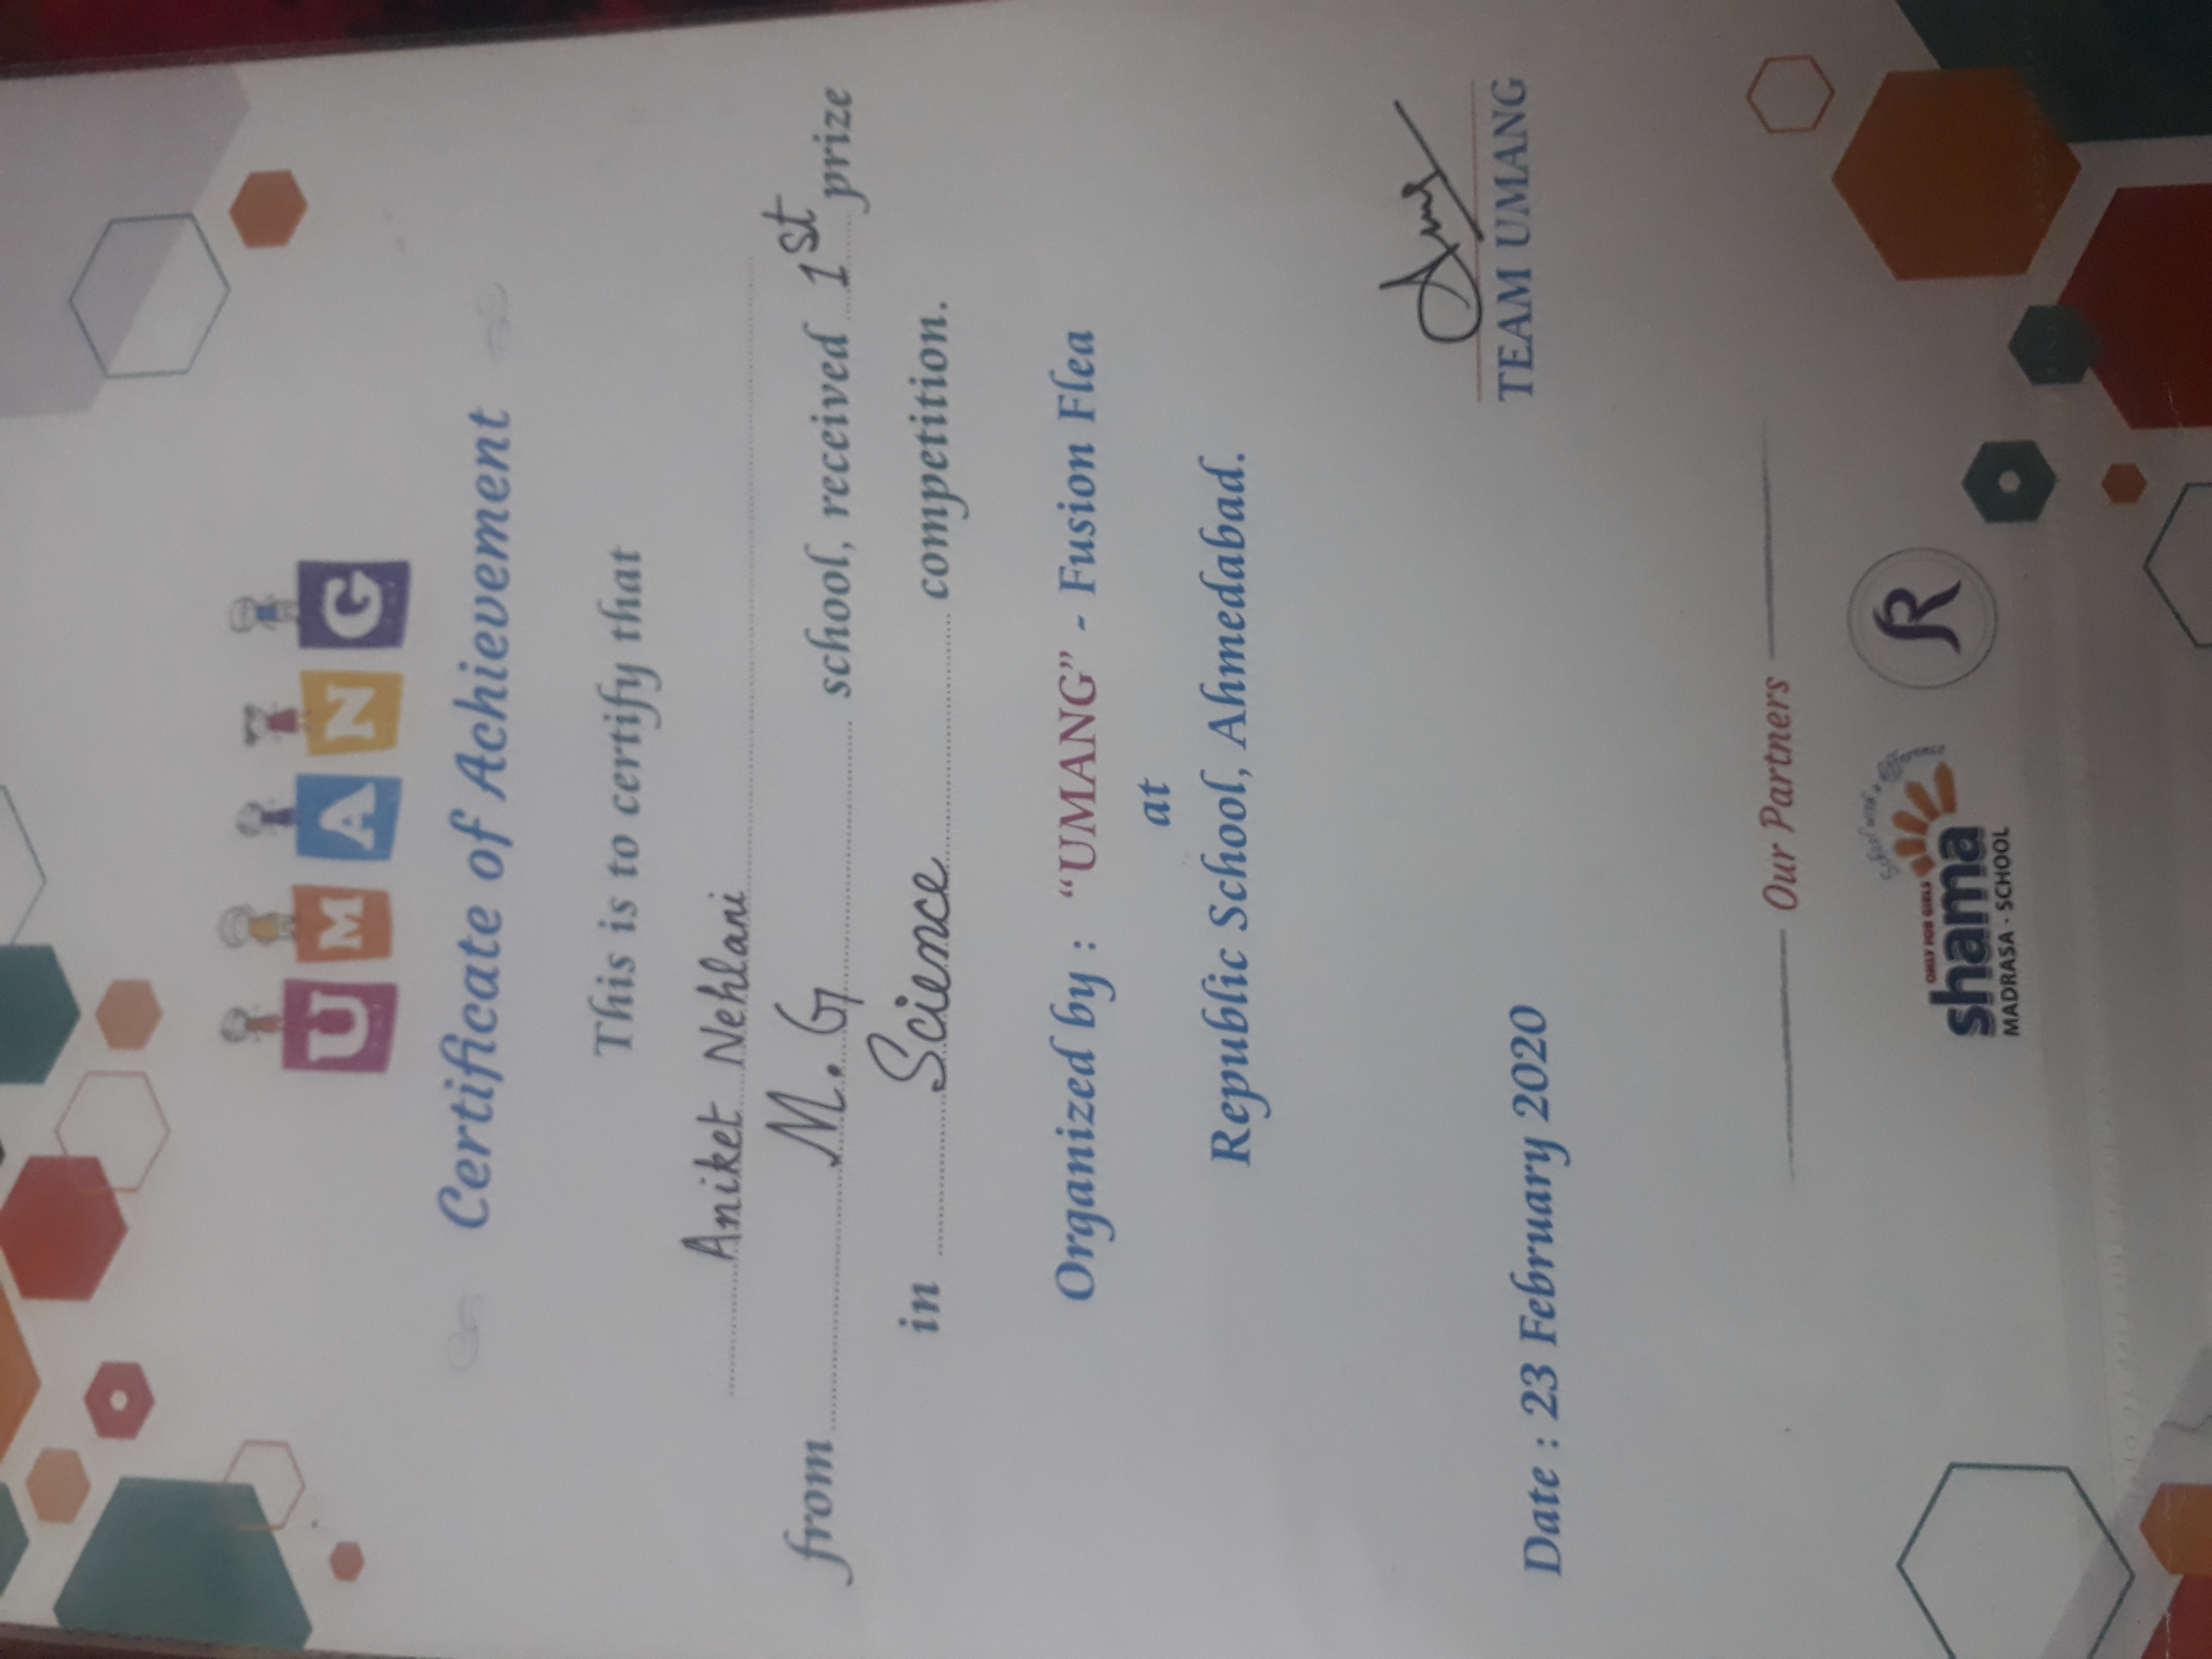 UMANG
Certificate of Achievement
This is to certify that
Aniket Nehlani
from M.G school, received 1st prize
in Science competition.
Organized by : “UMANG” - Fusion Flea
at
Republic School, Ahmedabad.
Date : 23 February 2020
TEAM UMANG
Our Partners
School with a difference
ONLY FOR GIRLS
shama
MADRASA - SCHOOL
R